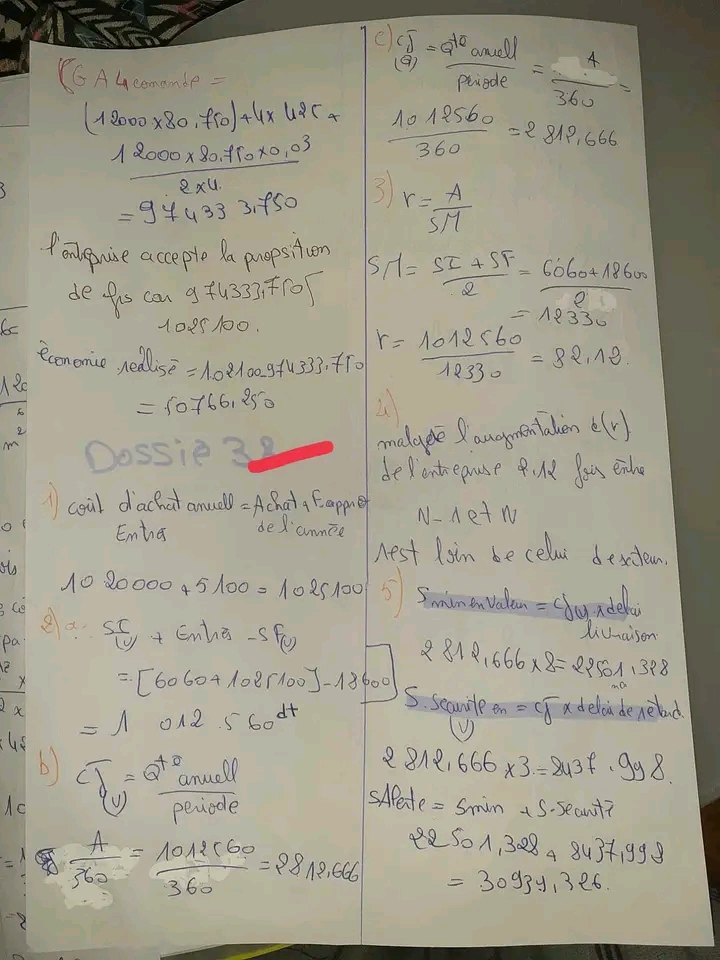 CGA 4 comende =
(12000 x 80,750) + 4 x 425 +
12000 x 80,750 x 0,03
2 x 4
= 974333,750
l'entreprise accepte la propsition
de frs car 974333,750 <
1025100.
économie realisé = 102100-974333,750
= 50766,250
Dossie 3
1) coût d'achat anuell = Achat + F. appro
Entrés de l'année
1020000 + 5100 = 1025100
2) a- SI + Entrés - SF
(V) (V)
= [6060 + 1025100] - 18600
= 1 012.560 dt
b) CJ = Qté anuell
(V) periode
A = 1012560 = 2812,666
360 360
c) CJ = Qté anuell = A =
(Q) periode 360
1012560 = 2812,666
360
3) r = A
SM
SM = SI + SF = 6060 + 18600
2 2
= 12330
r = 1012560 = 82,12.
12330
4)
malgré l'augmentation de (r)
de l'entreprise 2.12 fois entre
N-1 et N
rest loin de celui de secteur.
5) S min en Valeur = CJ(v) x delai
livraison
2 812,666 x 8 = 22501,328
S. securite en = CJ x delai de retard.
(V)
2 812,666 x 3 = 8437.998.
S Alerte = S min + S. Securité
22501,328 + 8437,998
= 30939,326.